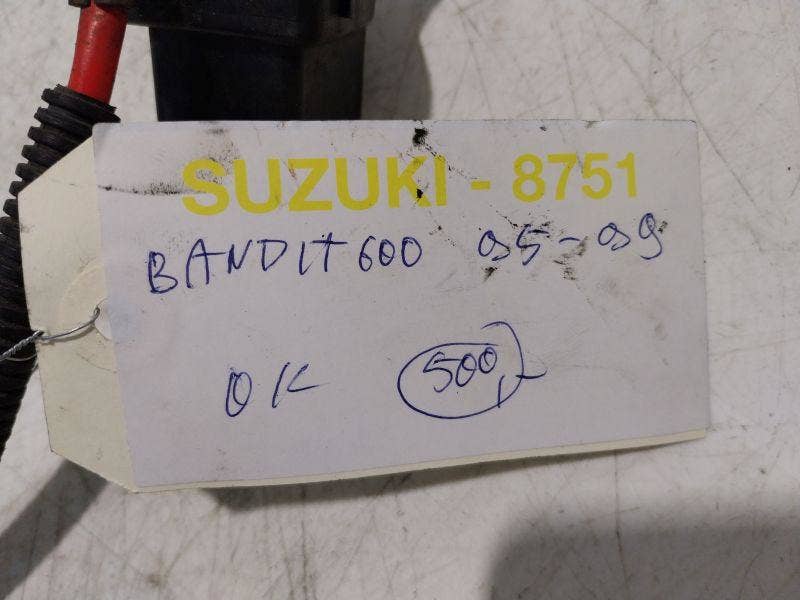 SUZUKI - 8751
BANDIT 600 95-99
OK 500,-